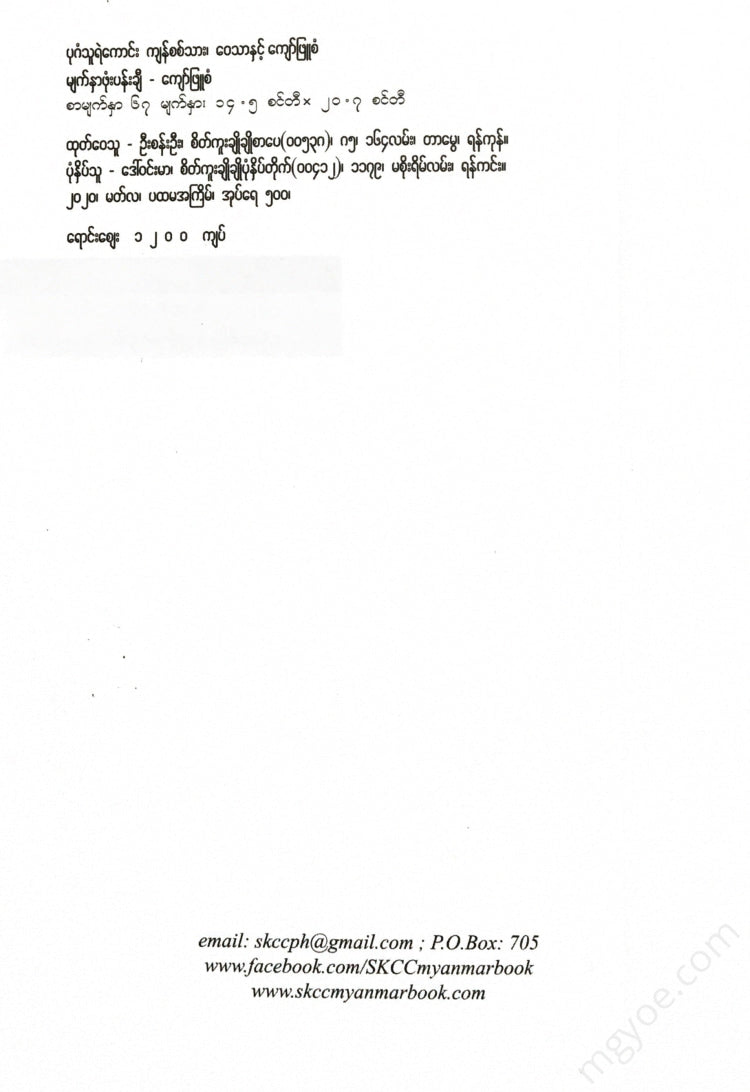 ပုဂံသူရဲကောင်း ကျန်စစ်သား၊ ဝေသာနှင့် ကျော်ဖြူစံ
မျက်နှာဖုံးပန်းချီ - ကျော်ဖြူစံ
စာမျက်နှာ ၆၇ မျက်နှာ၊ ၁၄ • ၅ စင်တီ × ၂၀ • ၇ စင်တီ
ထုတ်ဝေသူ - ဦးစန်းဦး၊ စိတ်ကူးချိုချိုစာပေ(၀၀၅၃၈)၊ ဂ၅၊ ၁၆၄လမ်း၊ တာမွေ၊ ရန်ကုန်။
ပုံနှိပ်သူ - ဒေါ်ဝင်းမာ၊ စိတ်ကူးချိုချိုပုံနှိပ်တိုက်(၀၀၄၁၂)၊ ၁၁၇၉၊ မစိုးရိမ်လမ်း၊ ရန်ကင်း။
၂၀၂၀၊ မတ်လ၊ ပထမအကြိမ်၊ အုပ်ရေ ၅၀၀၊
ရောင်းဈေး ၁ ၂ ၀ ၀ ကျပ်
email: skccph@gmail.com ; P.O.Box: 705
www.facebook.com/SKCCmyanmarbook
www.skccmyanmarbook.com
mgyoe.com